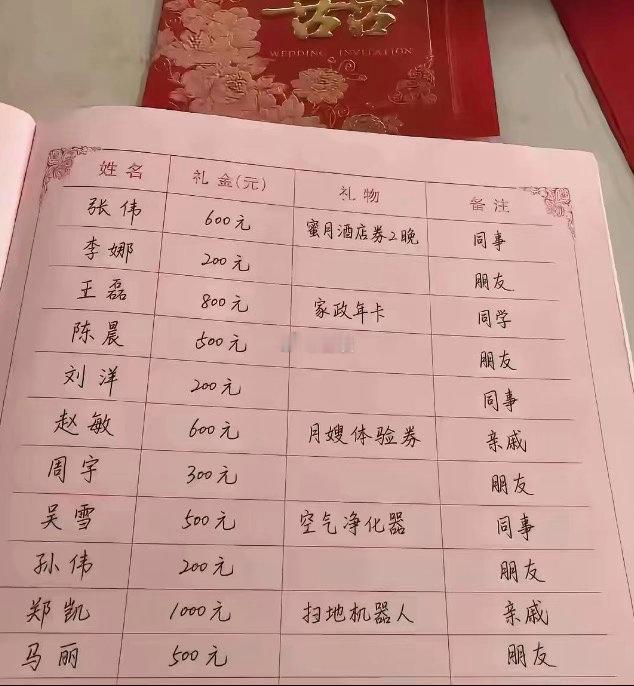 囍
WEDDING INVITATION
姓名 礼金(元) 礼物 备注
张伟 600元 蜜月酒店券2晚 同事
李娜 200元 朋友
王磊 800元 家政年卡 同学
陈晨 500元 朋友
刘洋 200元 同事
赵敏 600元 月嫂体验券 亲戚
周宇 300元 朋友
吴雪 500元 空气净化器 同事
孙伟 200元 朋友
郑凯 1000元 扫地机器人 亲戚
马丽 500元 朋友